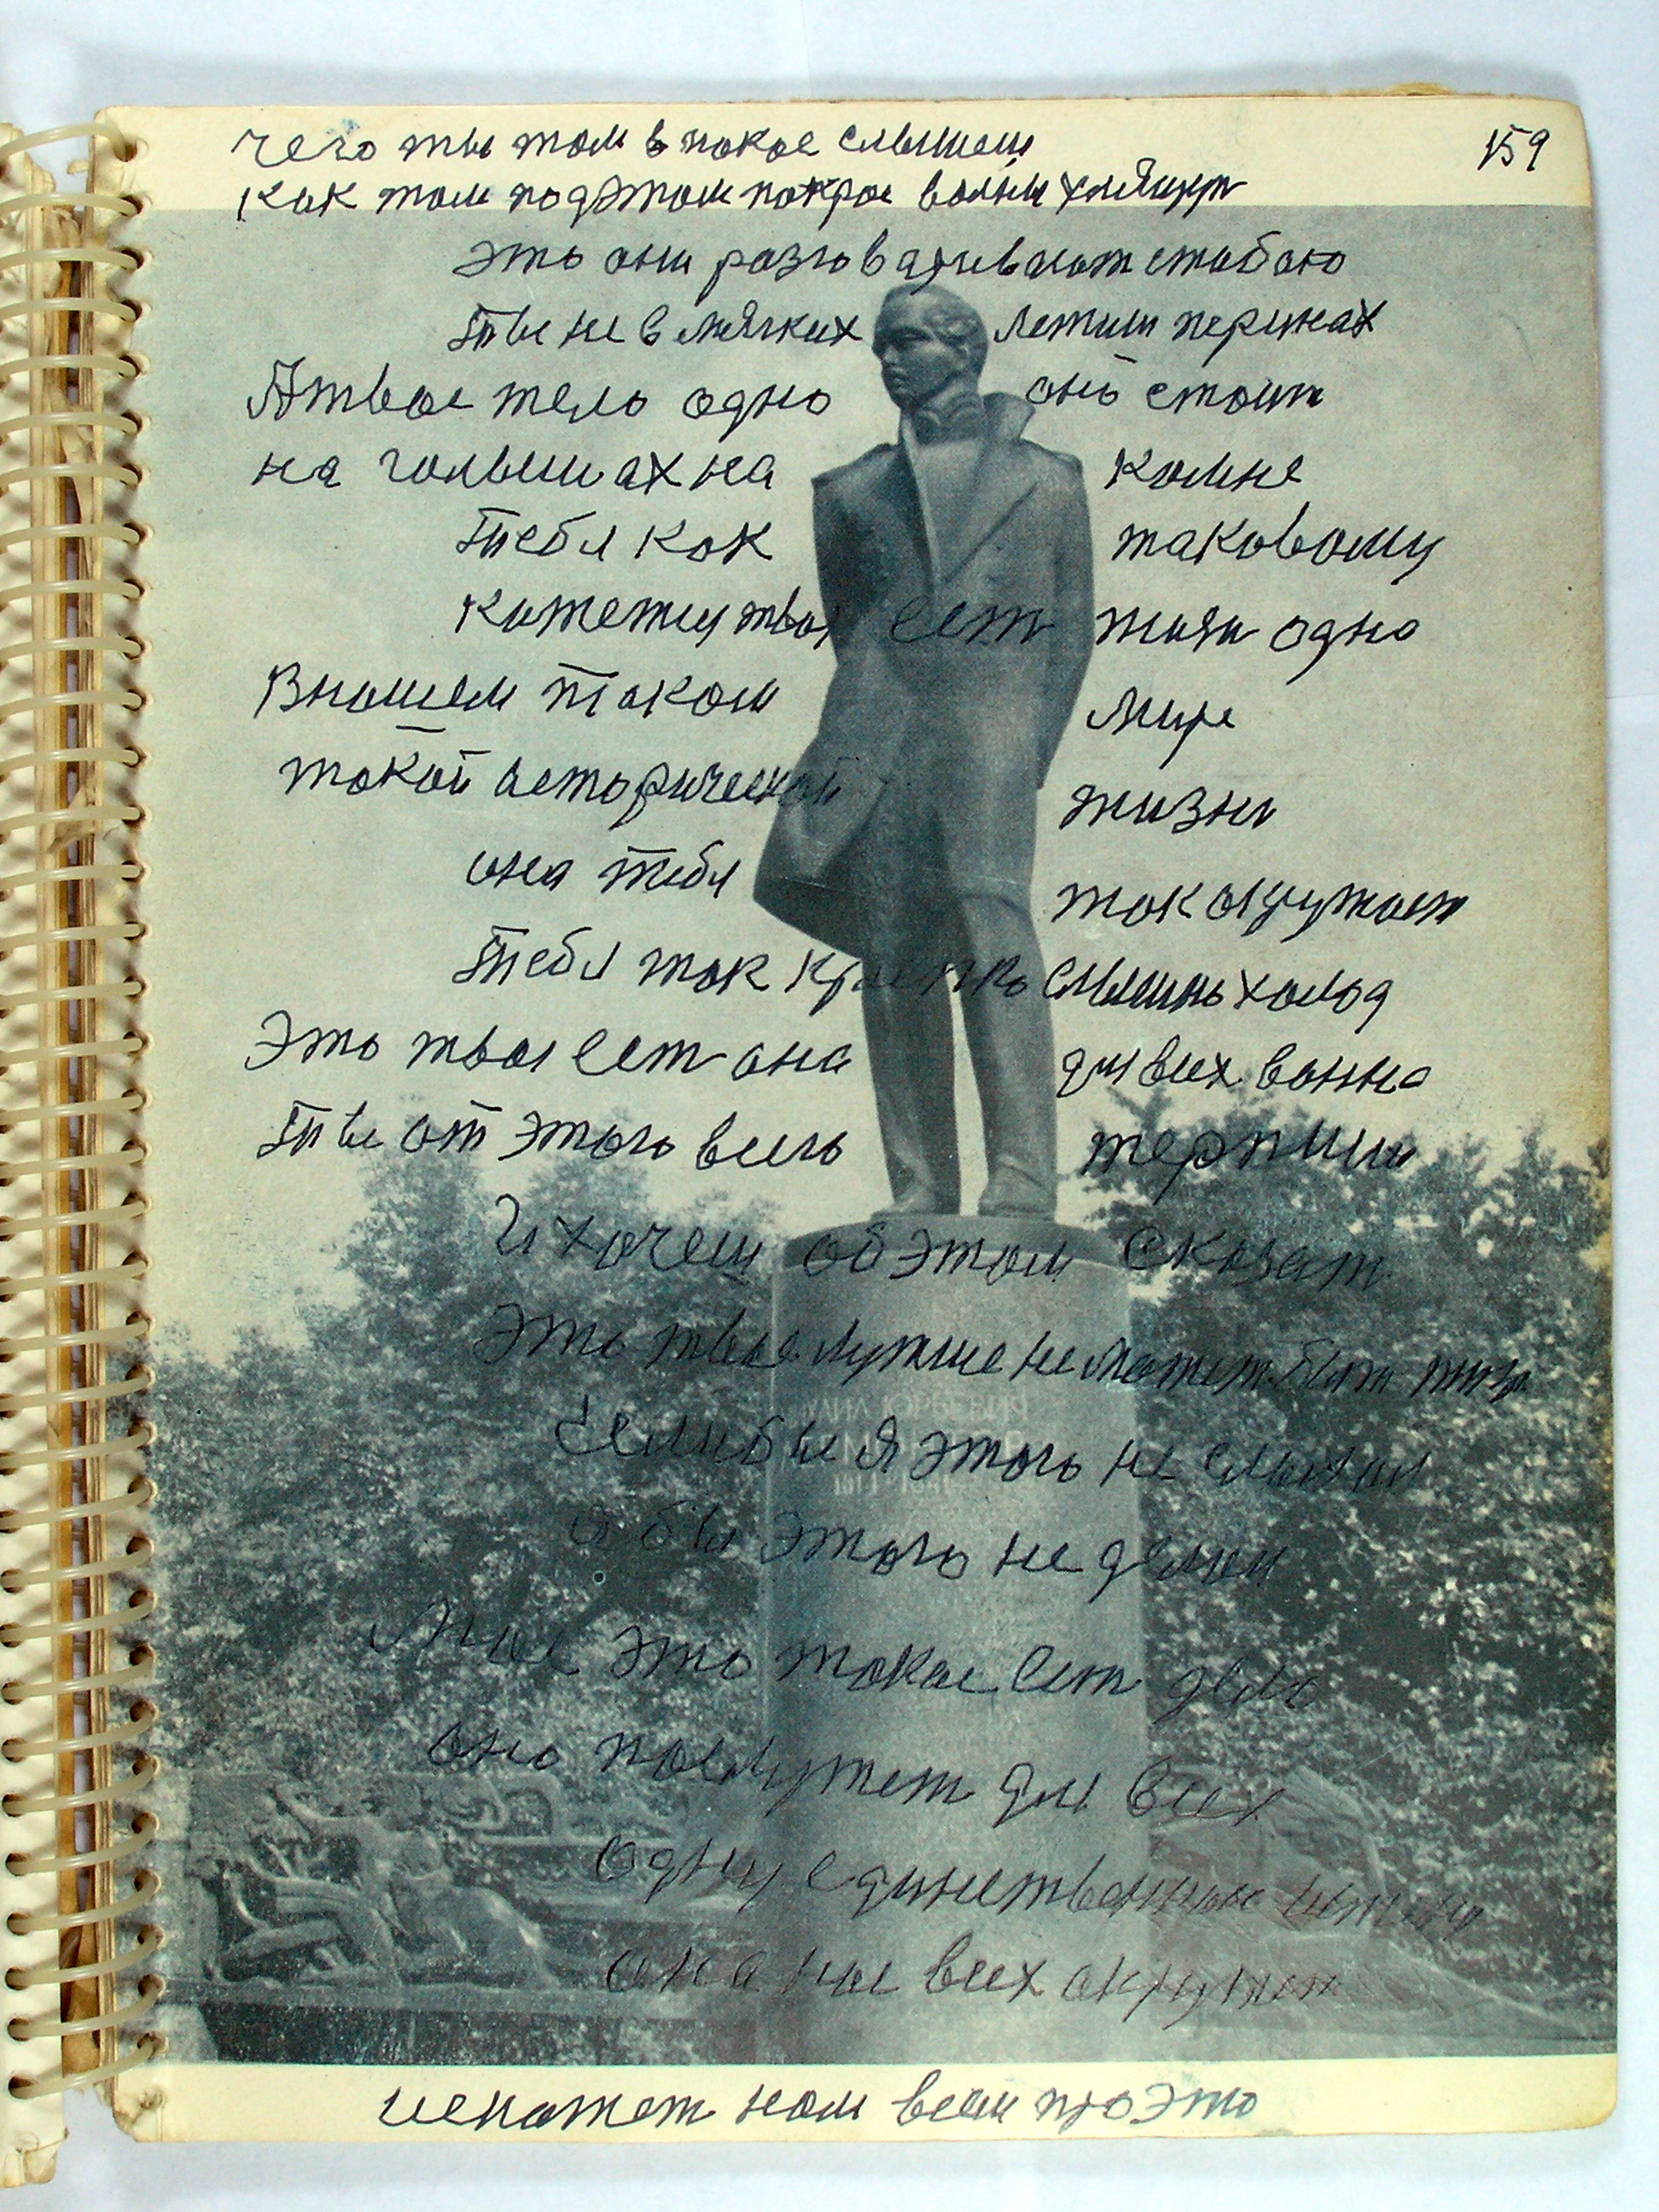 159
чего ты там в покое слышеш
как там под этом покрое волны
это они разговаривают стобою
ты не в мягких лежиш перинах
А твое тело одно оно стоит
на голышах на камне
тебя как таковому
кажетму твоя ест жизн одно
В нашем таком мире
такой историческай жизни
она тебя так окружает
тебя так крепко слышно холод
Это твоя ест она для всех ванна
ты от этого всего терпиш
И хочеш об этом сказат
это твое лучше не может быт
Если бы я этого не слыхал
я бы этого не делал
Мое это такое ест дело
оно послужет для всех
одну единственную
она нас всех окружет
и скажет нам всем про это
МИХАИЛ ЮРЬЕВИЧ
ЛЕРМОНТОВ
1814-1841